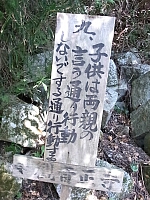 九、子供は両親の
言う通り行動
しないでする通り行動する